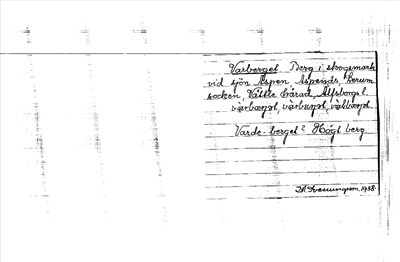 Varberget Berg i skogsmark
vid sjön Aspen, Aspenäs, Lerum
socken, Vättle härad, Älfsborgs l.
Varde-berget? Högt berg.
1938